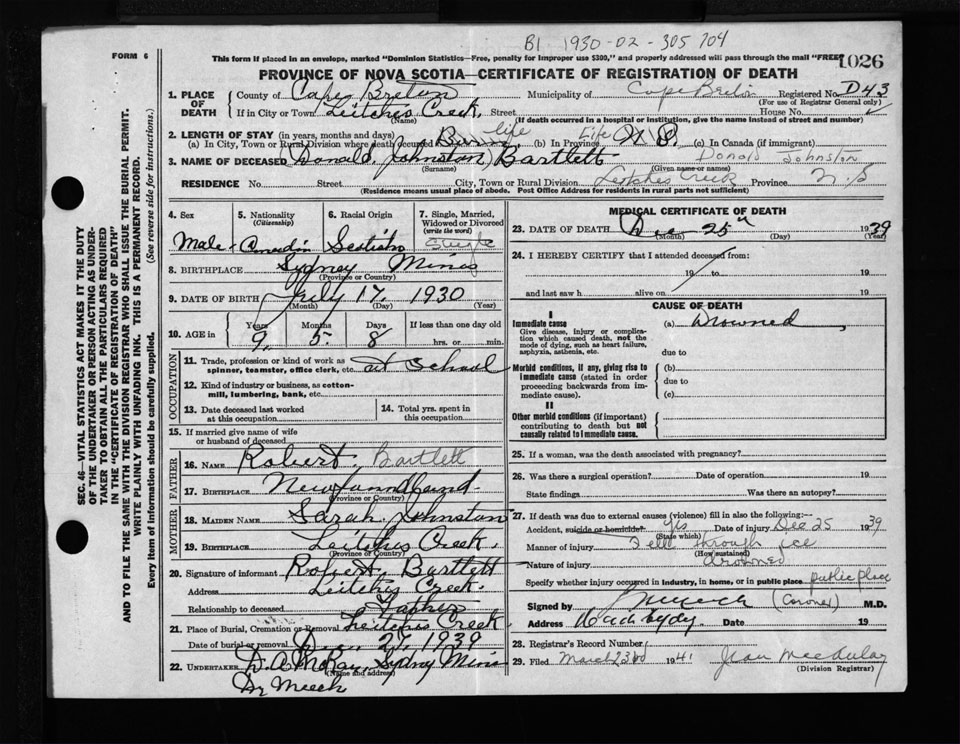 B1 1930-02-305704
FORM 6
This form if placed in an envelope, marked "Dominion Statistics—Free, penalty for improper use $300," and properly addressed will pass through the mail "FREE"
1026
PROVINCE OF NOVA SCOTIA—CERTIFICATE OF REGISTRATION OF DEATH
1. PLACE OF DEATH County of Cape Breton Municipality of Cape Breton Registered No. D43
(For use of Registrar General only)
If in City or Town Leitches Creek, Street House No.
(Name) (If death occurred in a hospital or institution, give the name instead of street and number)
2. LENGTH OF STAY (in years, months and days)
(a) In City, Town or Rural Division where death occurred life (b) In Province Life N.S. (c) In Canada (if immigrant)
3. NAME OF DECEASED Donald Johnston Bartlett Donald Johnston
(Surname) (Given name or names)
RESIDENCE No. Street City, Town or Rural Division Leitches Creek Province N S
(Residence means usual place of abode. Post Office Address for residents in rural parts not sufficient)
4. Sex 5. Nationality (Citizenship) 6. Racial Origin 7. Single, Married, Widowed or Divorced (write the word)
Male Canadian Scotish Single
8. BIRTHPLACE Sydney Mines
(Province or Country)
9. DATE OF BIRTH July 17, 1930
(Month) (Day) (Year)
10. AGE in Years Months Days If less than one day old
9 5 8 hrs. or min.
OCCUPATION
11. Trade, profession or kind of work as spinner, teamster, office clerk, etc. at School
12. Kind of industry or business, as cotton-mill, lumbering, bank, etc.
13. Date deceased last worked at this occupation
14. Total yrs. spent in this occupation
15. If married give name of wife or husband of deceased
FATHER
16. NAME Robert Bartlett
17. BIRTHPLACE Newfoundland
(Province or Country)
MOTHER
18. MAIDEN NAME Sarah Johnston
19. BIRTHPLACE Leitches Creek
(Province or Country)
20. Signature of informant Robert Bartlett
Address Leitches Creek
Relationship to deceased Father
21. Place of Burial, Cremation or Removal Leitches Creek
Date of burial or removal 27, 1939
22. UNDERTAKER D. A. McKay, Sydney Mines
(Name and address)
Dr Meech
MEDICAL CERTIFICATE OF DEATH
23. DATE OF DEATH Dec 25 1939
(Month) (Day) (Year)
24. I HEREBY CERTIFY that I attended deceased from:
19 to 19
and last saw h alive on 19
CAUSE OF DEATH
I
Immediate cause (a) Drowned
Give disease, injury or complication which caused death, not the mode of dying, such as heart failure, asphyxia, asthenia, etc.
due to
Morbid conditions, if any, giving rise to immediate cause (stated in order proceeding backwards from immediate cause). (b)
due to
(c)
II
Other morbid conditions (if important) contributing to death but not causally related to immediate cause.
25. If a woman, was the death associated with pregnancy?
26. Was there a surgical operation? Date of operation 19
State findings Was there an autopsy?
27. If death was due to external causes (violence) fill in also the following:—
Accident, suicide or homicide? yes Date of injury Dec 25 1939
(State which)
Manner of injury Fell through ice
(How sustained)
Nature of injury drowned
Specify whether injury occurred in industry, in home, or in public place public place
Signed by Meech (Coroner) M.D.
Address Date 19
28. Registrar's Record Number
29. Filed March 1941 Jean
(Division Registrar)
SEC. 46—VITAL STATISTICS ACT MAKES IT THE DUTY
OF THE UNDERTAKER OR PERSON ACTING AS UNDER-
TAKER TO OBTAIN ALL THE PARTICULARS REQUIRED
IN THE "CERTIFICATE OF REGISTRATION OF DEATH"
AND TO FILE THE SAME WITH THE DIVISION REGISTRAR WHO SHALL ISSUE THE BURIAL PERMIT.
WRITE PLAINLY WITH UNFADING INK. THIS IS A PERMANENT RECORD.
Every item of information should be carefully supplied. (See reverse side for instructions.)